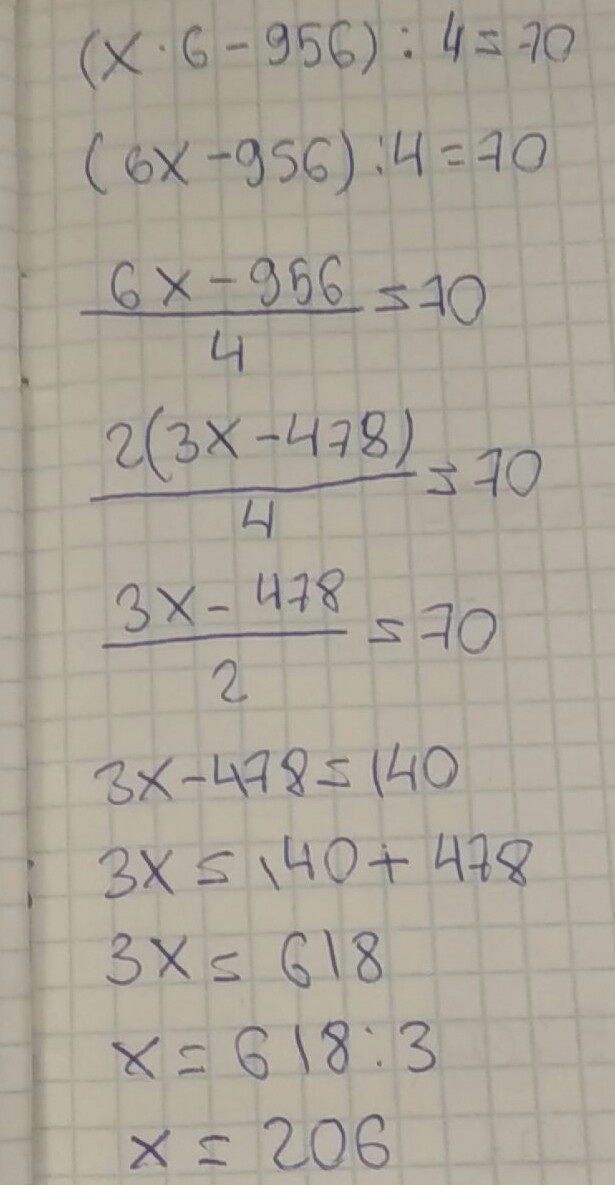 (x · 6 - 956) : 4 = 70
(6x - 956) : 4 = 70
6x - 956
4
= 70
2(3x - 478)
4
= 70
3x - 478
2
= 70
3x - 478 = 140
3x = 140 + 478
3x = 618
x = 618 : 3
x = 206